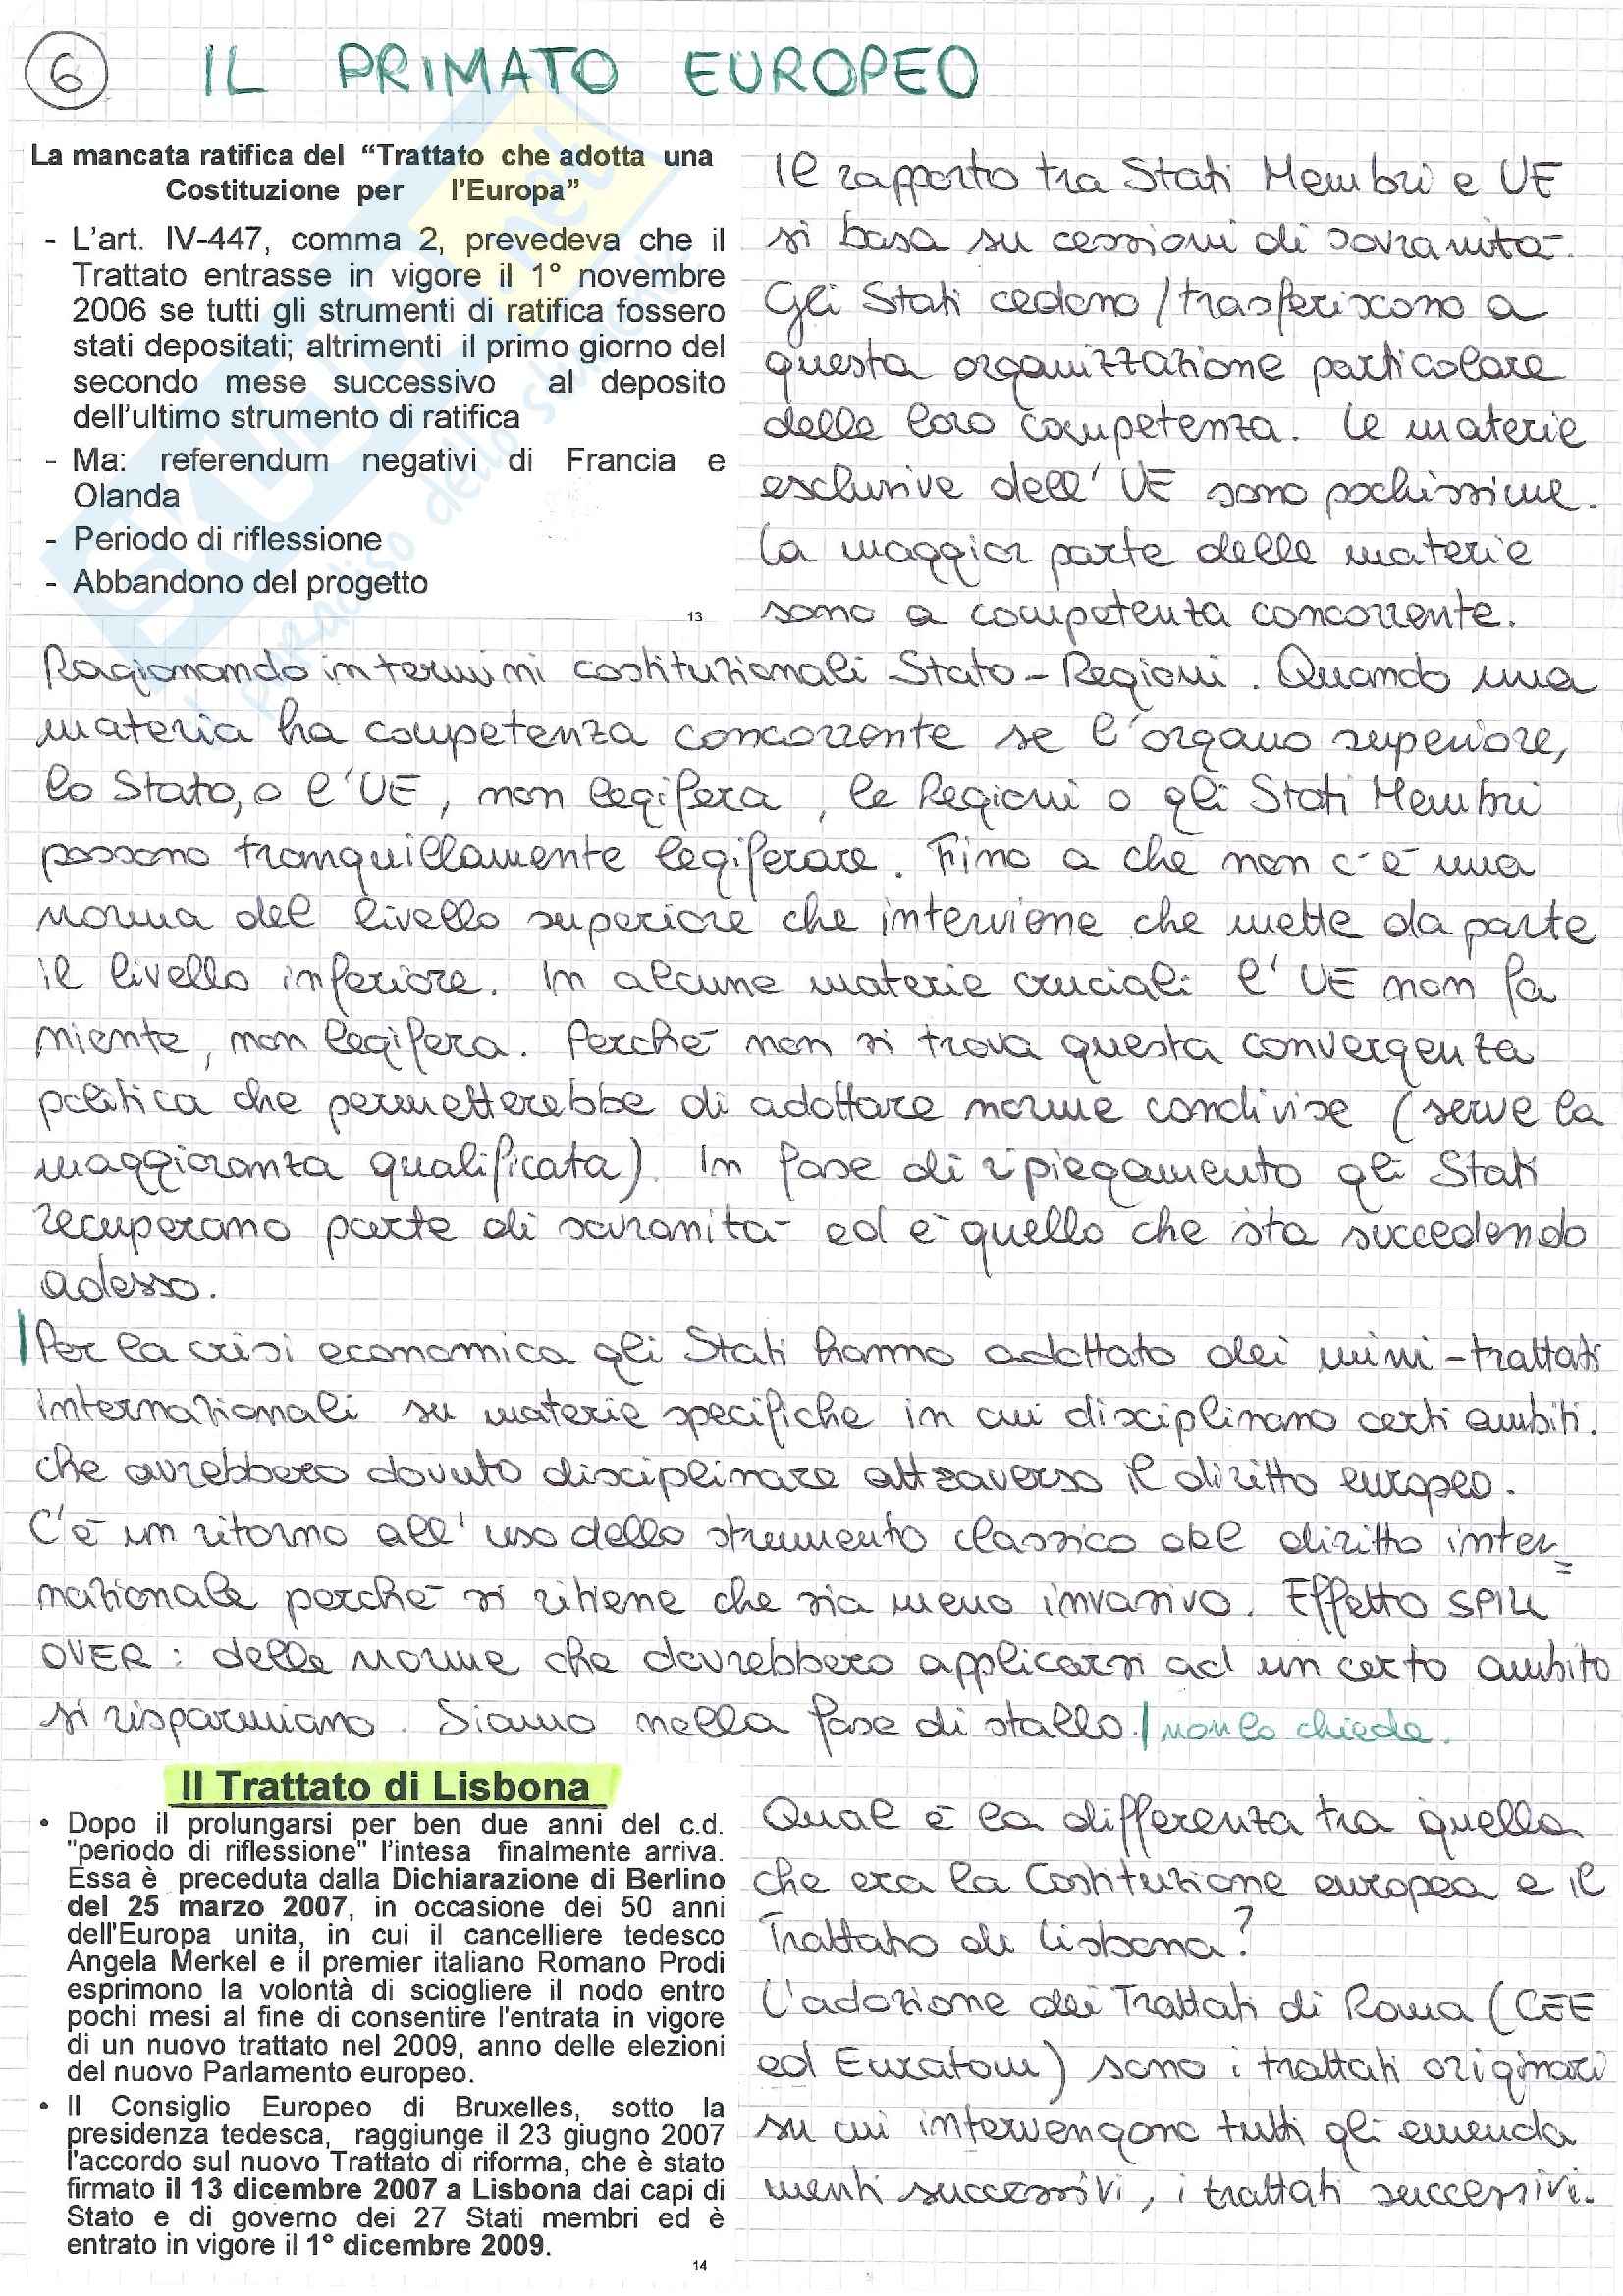 6 IL PRIMATO EUROPEO
La mancata ratifica del “Trattato che adotta una
Costituzione per l'Europa”
- L’art. IV-447, comma 2, prevedeva che il
Trattato entrasse in vigore il 1° novembre
2006 se tutti gli strumenti di ratifica fossero
stati depositati; altrimenti il primo giorno del
secondo mese successivo al deposito
dell’ultimo strumento di ratifica
- Ma: referendum negativi di Francia e
Olanda
- Periodo di riflessione
- Abbandono del progetto
13
Il rapporto tra Stati Membri e UE
si basa su cessioni di sovranità.
Gli Stati cedono/trasferiscono a
questa organizzazione particolare
delle loro competenza. Le materie
esclusive dell'UE sono pochissime.
La maggior parte delle materie
sono a competenza concorrente.
Ragionando in termini costituzionali Stato-Regioni. Quando una
materia ha competenza concorrente se l'organo superiore,
lo Stato, o l'UE, non legifera, le Regioni o gli Stati Membri
possono tranquillamente legiferare. Fino a che non c'è una
norma del livello superiore che interviene che mette da parte
il livello inferiore. In alcune materie cruciali l'UE non fa
niente, non legifera. Perché non si trova questa convergenza
politica che permetterebbe di adottare norme condivise (serve la
maggioranza qualificata). In fase di ripiegamento gli Stati
recuperano parte di sovranità ed è quello che sta succedendo
adesso.
Per la crisi economica gli Stati hanno adottato dei mini-trattati
internazionali su materie specifiche in cui disciplinano certi ambiti.
che avrebbero dovuto disciplinare attraverso il diritto europeo.
C'è un ritorno all'uso dello strumento classico del diritto inter=
nazionale perché si ritiene che sia meno invasivo. Effetto SPILL
OVER: delle norme che dovrebbero applicarsi ad un certo ambito
si risparmiano. Siamo nella fase di stallo. / non lo chiede.
Il Trattato di Lisbona
• Dopo il prolungarsi per ben due anni del c.d.
"periodo di riflessione" l’intesa finalmente arriva.
Essa è preceduta dalla Dichiarazione di Berlino
del 25 marzo 2007, in occasione dei 50 anni
dell'Europa unita, in cui il cancelliere tedesco
Angela Merkel e il premier italiano Romano Prodi
esprimono la volontà di sciogliere il nodo entro
pochi mesi al fine di consentire l'entrata in vigore
di un nuovo trattato nel 2009, anno delle elezioni
del nuovo Parlamento europeo.
• Il Consiglio Europeo di Bruxelles, sotto la
presidenza tedesca, raggiunge il 23 giugno 2007
l'accordo sul nuovo Trattato di riforma, che è stato
firmato il 13 dicembre 2007 a Lisbona dai capi di
Stato e di governo dei 27 Stati membri ed è
entrato in vigore il 1° dicembre 2009.
14
Qual è la differenza tra quella
che era la Costituzione europea e il
Trattato di Lisbona?
L'adozione dei Trattati di Roma (CEE
ed Euratom) sono i trattati originari
su cui intervengono tutti gli emenda
menti successivi, i trattati successivi.